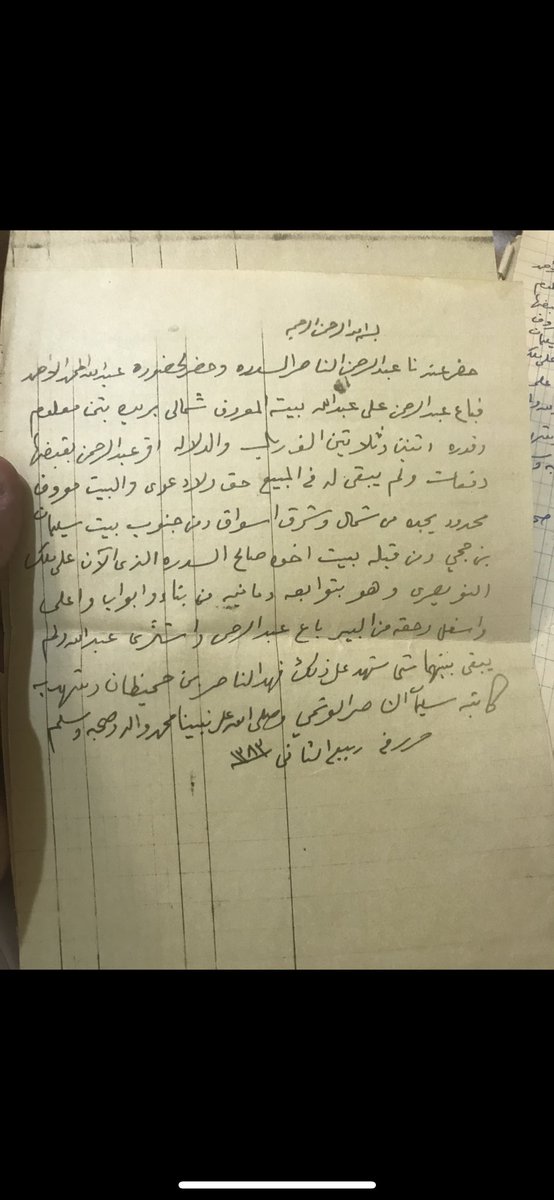 بسم الله الرحمن الرحيم
حضر عندنا عبدالرحمن الناصر السدره وحضر لحضوره عبدالله المحمد
فباع عبدالرحمن على عبدالله بيته المعروف شمالي بريده بثمن معلوم
وقدره اثنين وثلاثين الف ريال والدلاله اقر عبدالرحمن بقبضها
دفعات ولم يبقى له في المبيع حق ولا دعوى والبيت معروف
محدود يحده من شمال وشرق اسواق ومن جنوب بيت سليمان
بن حجي ومن قبله بيت اخوه صالح السدره الذي الآن على ملك
النويصري وهو بتوابعه ومافيه من بناء وابواب واعلى
واسفل وحقه من البير باع عبدالرحمن واشترى عبدالله ولم
يبقى بينهما شي شهد على ذلك فهد الناصر بن حميظان وشهد به
كاتبه سليمان الناصر الوشمي وصلى الله على نبينا محمد واله وصحبه وسلم
حرر في ربيع الثاني ١٣٨٣